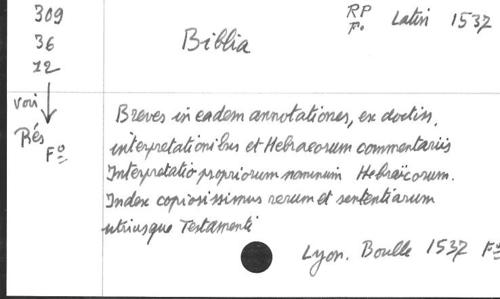 309
36
12
voir
Rés
Fo
Biblia
RP
Fo
Latin 1537
Breves in eadem annotationes, ex doctiss.
interpretationibus et Hebraeorum commentariis
Interpretatio propriorum nominum Hebraïcorum.
Index copiosissimus rerum et sententiarum
utriusque Testamenti
Lyon. Boulle 1537 Fo